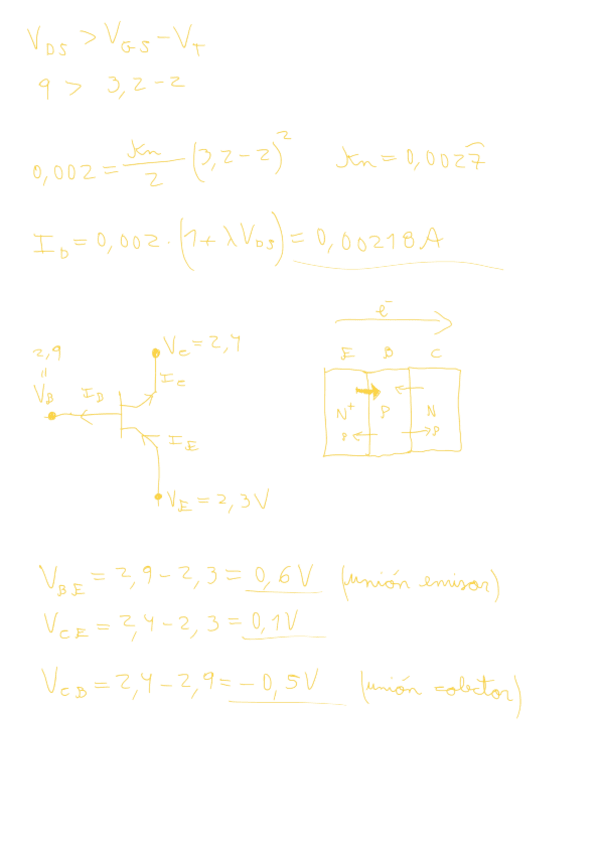 V_DS > V_GS - V_T
9 > 3,2 - 2
0,002 = kn/2 (3,2 - 2)^2 kn = 0,0027̂
I_D = 0,002 · (1 + λ V_DS) = 0,00218 A
e⁻
2,9
=
V_B
I_B
V_C = 2,4
I_C
I_E
V_E = 2,3 V
E B C
N⁺ P N
V_BE = 2,9 - 2,3 = 0,6 V (unión emisor)
V_CE = 2,4 - 2,3 = 0,1 V
V_CB = 2,4 - 2,9 = -0,5 V (unión colector)